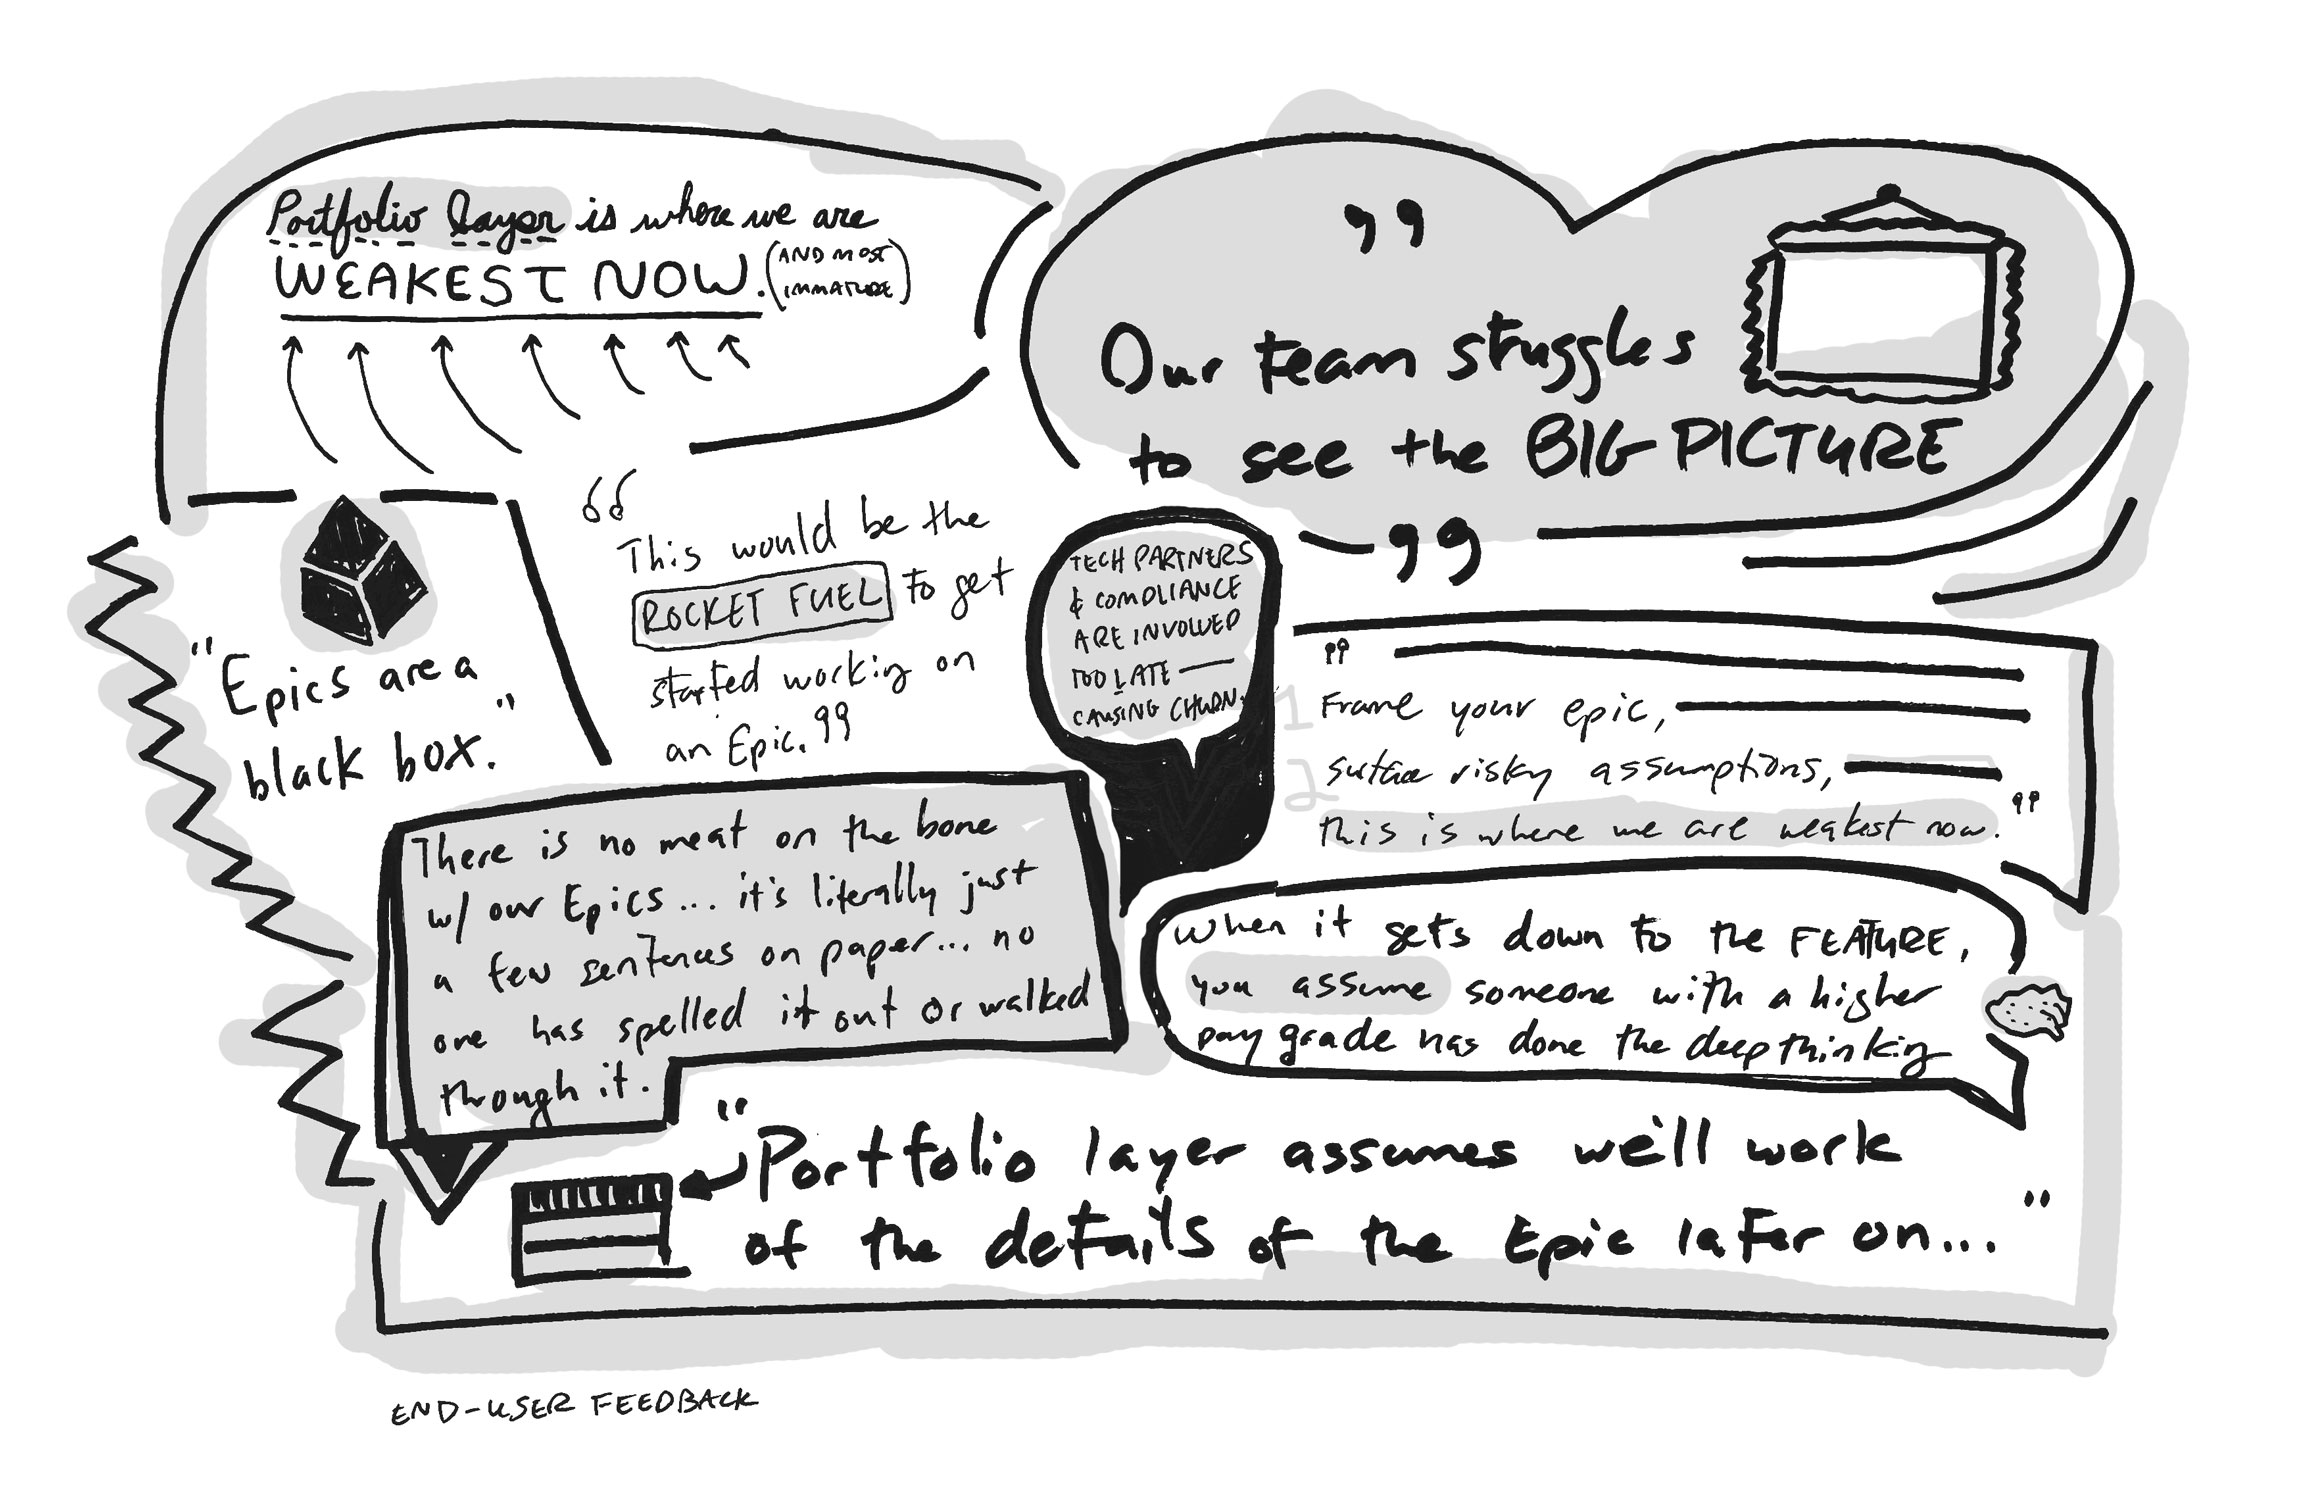 Portfolio layer is where we are
WEAKEST NOW. (AND MOST
IMMATURE)
"
Our team struggles
to see the BIG PICTURE
"
"Epics are a
black box."
"
This would be the
ROCKET FUEL to get
started working on
an Epic."
TECH PARTNERS
& COMPLIANCE
ARE INVOLVED
TOO LATE —
CAUSING CHURN.
"
1
Frame your epic,
2
surface risky assumptions,
this is where we are weakest now."
There is no meat on the bone
w/ our Epics... it's literally just
a few sentences on paper... no
one has spelled it out or walked
through it.
When it gets down to the FEATURE,
you assume someone with a higher
pay grade has done the deep thinking
"Portfolio layer assumes we'll work
of the details of the Epic later on..."
END-USER FEEDBACK